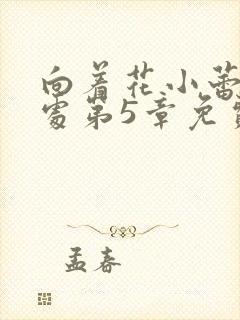 向着花小蕾
处第5章免费
孟春